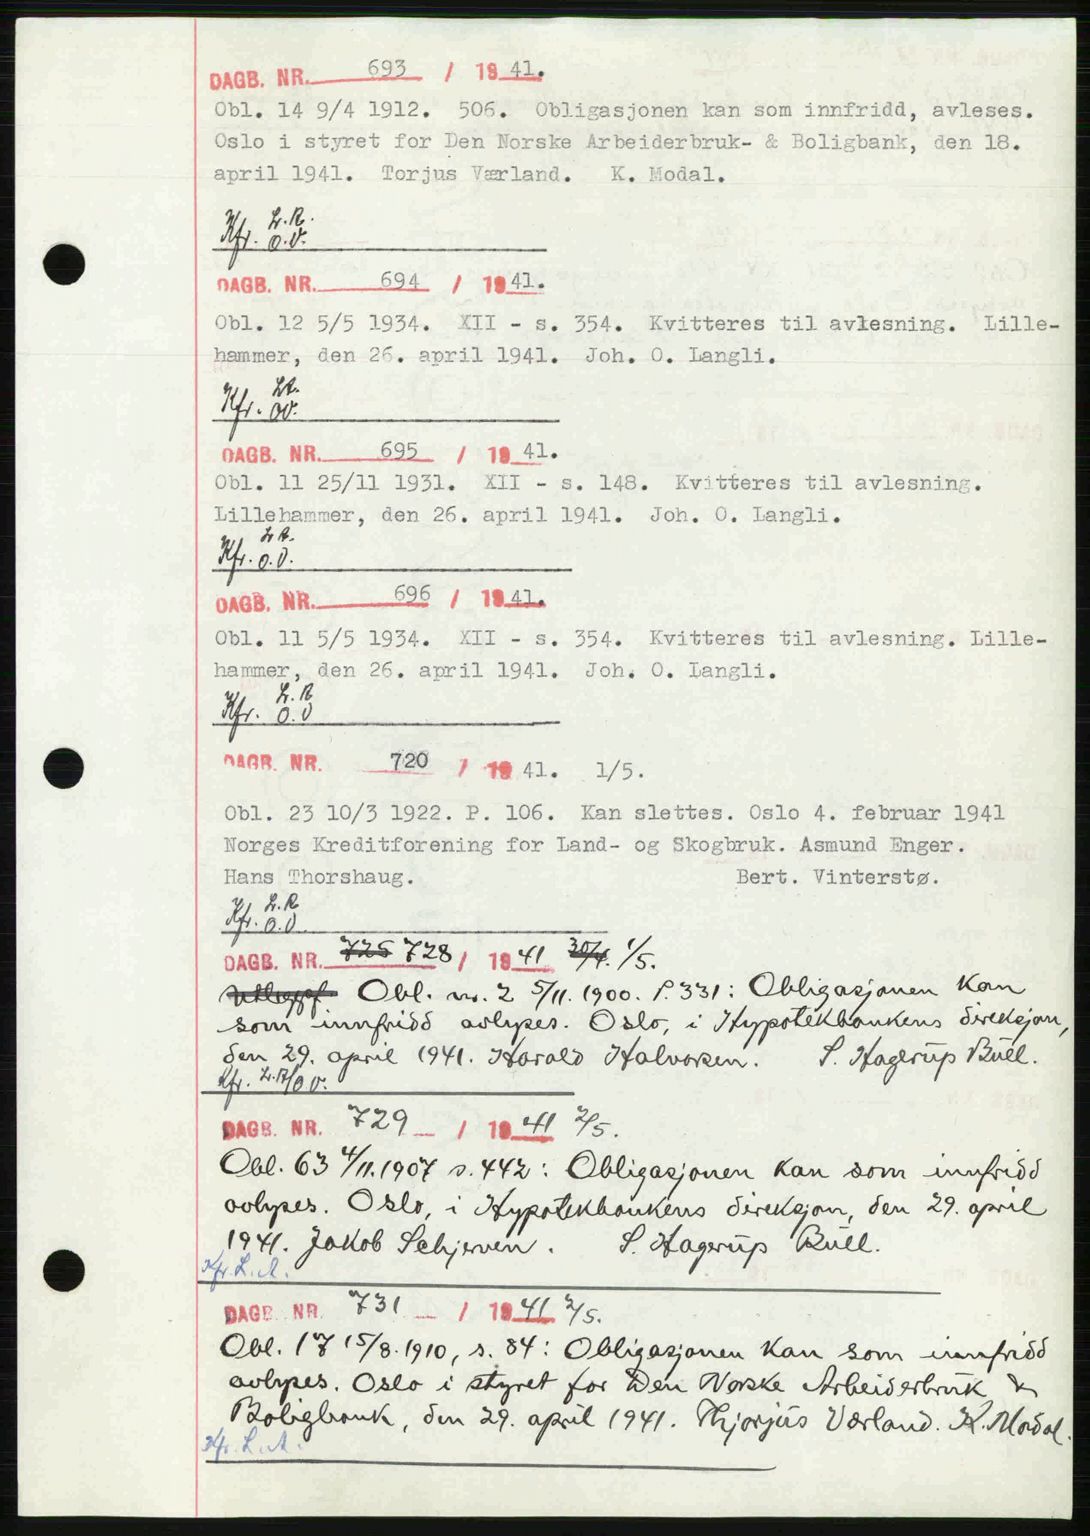 DAGB. NR. 693 / 1941.
Obl. 14 9/4 1912. 506. Obligasjonen kan som innfridd, avleses.
Oslo i styret for Den Norske Arbeiderbruk- & Boligbank, den 18.
april 1941. Torjus Værland. K. Modal.
Kfr. L.R.
O.V.
DAGB. NR. 694 / 1941.
Obl. 12 5/5 1934. XII - s. 354. Kvitteres til avlesning. Lille-
hammer, den 26. april 1941. Joh. O. Langli.
Kfr. L.R.
O.V.
DAGB. NR. 695 / 1941.
Obl. 11 25/11 1931. XII - s. 148. Kvitteres til avlesning.
Lillehammer, den 26. april 1941. Joh. O. Langli.
Kfr. L.R.
O.V.
DAGB. NR. 696 / 1941.
Obl. 11 5/5 1934. XII - s. 354. Kvitteres til avlesning. Lille-
hammer, den 26. april 1941. Joh. O. Langli.
Kfr. L.R
O.V
DAGB. NR. 720 / 1941. 1/5.
Obl. 23 10/3 1922. P. 106. Kan slettes. Oslo 4. februar 1941
Norges Kreditforening for Land- og Skogbruk. Asmund Enger.
Hans Thorshaug. Bert. Vinterstø.
Kfr. L.R
O.V.
DAGB. NR. 725 728 / 1941 30/4. 1/5.
Obl. nr. 2 5/11. 1900. P. 331: Obligasjonen kan
som innfridd avlyses. Oslo, i Hypotekbankens direksjon,
den 29. april 1941. Harald Halvorsen. S. Hagerup Bull.
Kfr. L.R/O.V.
DAGB. NR. 729 / 1941 2/5.
Obl. 63 4/11. 1907 s. 442: Obligasjonen kan som innfridd
avlyses. Oslo, i Hypotekbankens direksjon, den 29. april
1941. Jakob Schjerven. S. Hagerup Bull.
Kfr. L.R.
DAGB. NR. 731 / 1941 2/5.
Obl. 17 15/8. 1910, s. 84: Obligasjonen kan som innfridd
avlyses. Oslo i styret for Den Norske Arbeiderbruk &
Boligbank, den 29. april 1941. Thjorjus Værland. K. Modal.
Kfr. L.R.